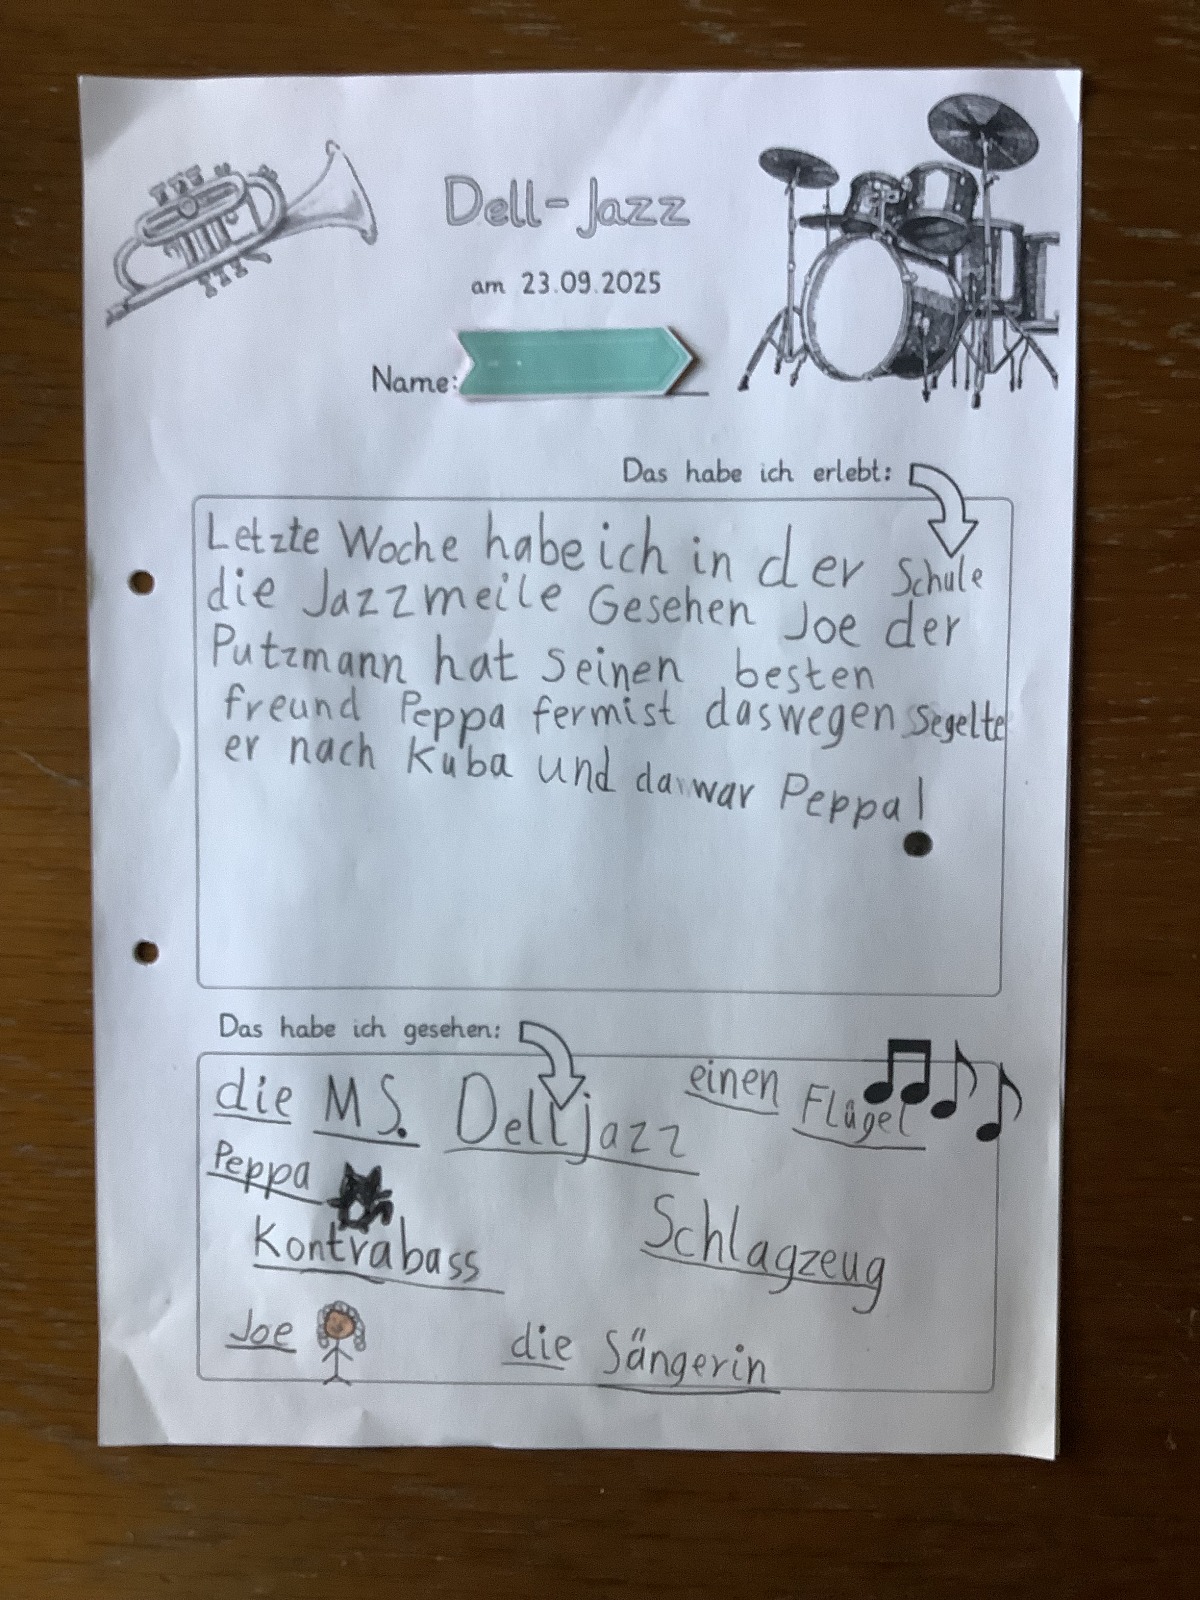 Dell-Jazz
am 23.09.2025
Name:
Das habe ich erlebt:
Letzte Woche habe ich in der Schule
die Jazzmeile Gesehen Joe der
Putzmann hat seinen besten
freund Peppa fermist daswegen segelte
er nach Kuba und da war Peppa!
Das habe ich gesehen:
die MS. Delljazz einen Flügel
Peppa
Kontrabass Schlagzeug
Joe die Sängerin